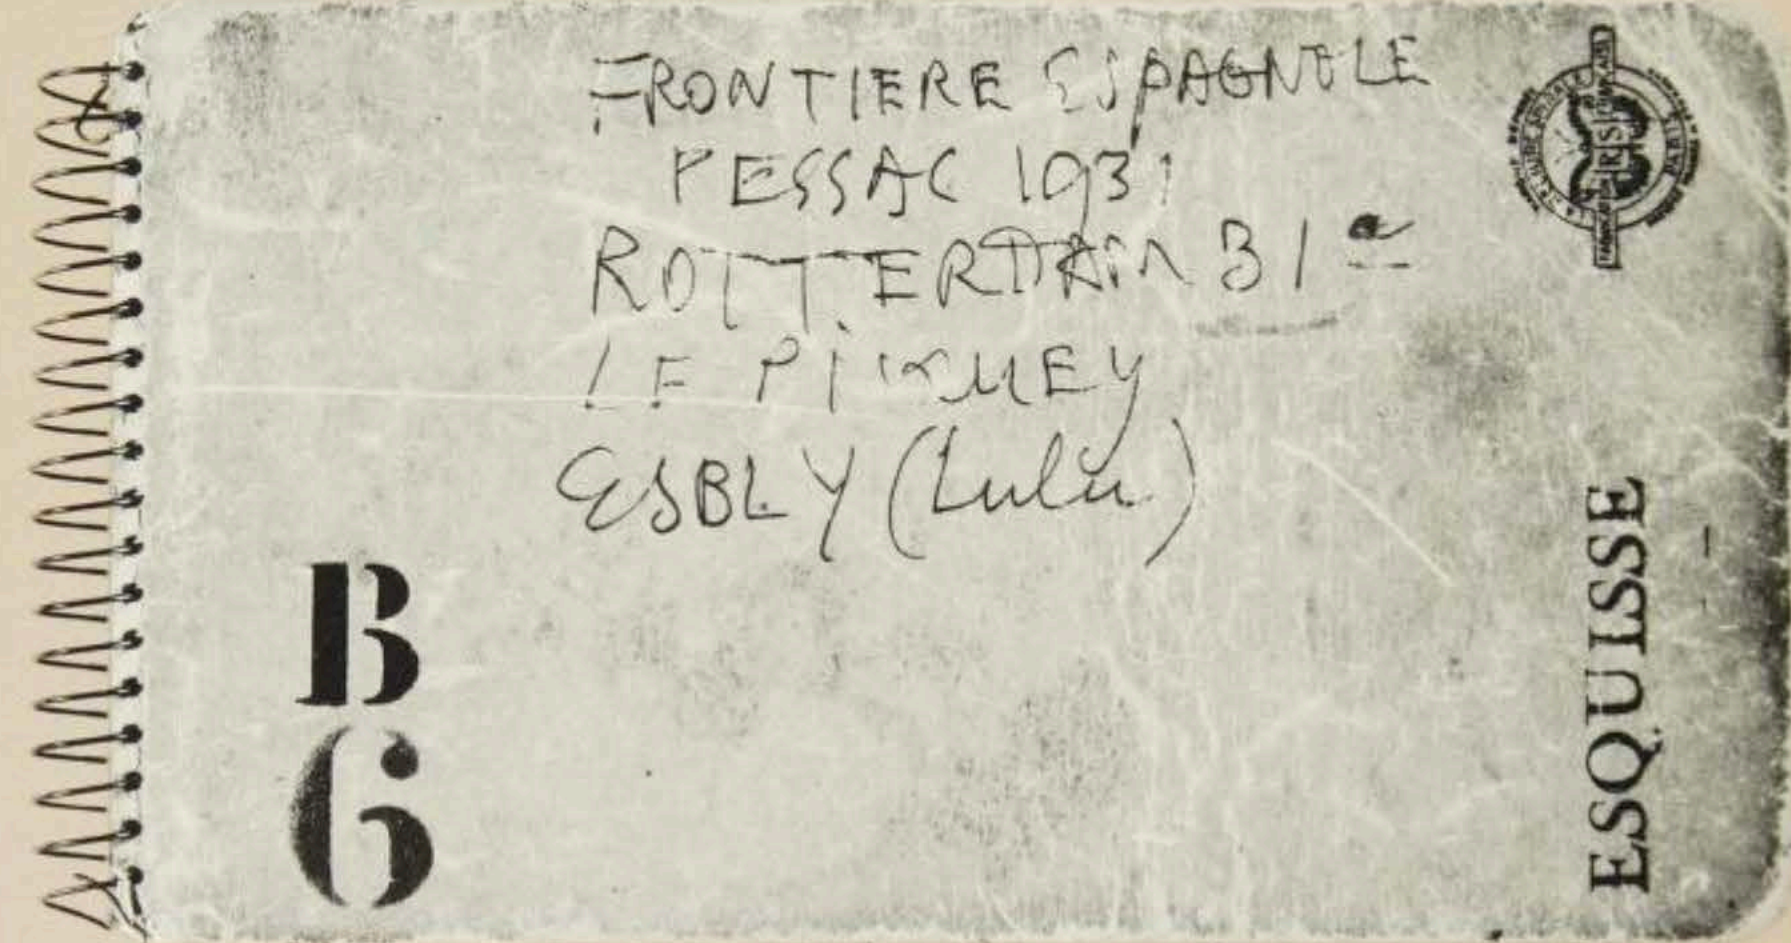 FRONTIERE ESPAGNOLE
PESSAC 1931
ROTTERDAM 31
LE PIQUEY
ESBLY (Lulu)
B
6
ESQUISSE